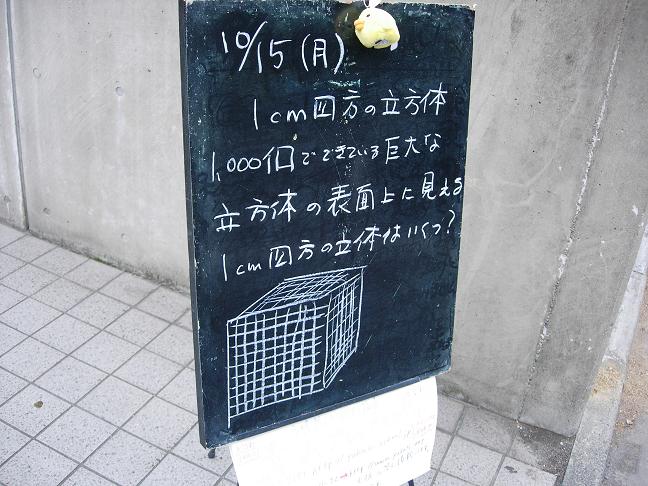 10/15(月)
1cm四方の立方体
1,000個でできている巨大な
立方体の表面上に見える
1cm四方の立体はいくつ?